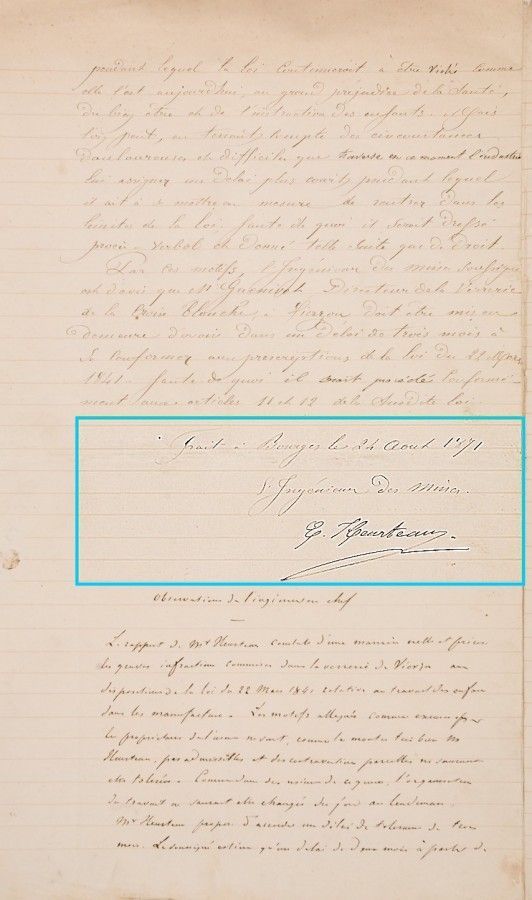 pendant lequel la loi continuerait à être violée comme
elle l'est aujourd'hui au grand préjudice de la Santé,
du bien être et de l'instruction des enfants. Mais
l'on peut, en tenant compte des circonstances
douloureuses et difficiles que traverse en ce moment l'industrie
lui assigner un délai plus court, pendant lequel
il ait à se mettre en mesure de rentrer dans les
limites de la loi, faute de quoi il serait dressé
procès-verbal et donné telle suite que de droit.
Par ces motifs, l'Ingénieur des mines soussigné
est d'avis que M Directeur de la Verrerie
de la Croix Blanche à Vierzon doit être mis en
demeure d'avoir dans un délai de trois mois à
se conformer aux prescriptions de la loi du 22 Mars
1841. faute de quoi il serait procédé conformé-
ment aux articles 11 et 12 de la Susdite loi.
Fait à Bourges le 24 Aout 1871
L'Ingénieur des mines.
E. Heurteau.
Observations de l'ingénieur en chef
Le rapport de Mr Heurteau constate d'une manière nette et précise
les graves infractions commises dans la verrerie de Vierzon aux
dispositions de la loi du 22 Mars 1841 relative au travail des enfans
dans les manufactures. Les motifs allégués comme excuse
le propriétaire de l'usine ne sont, comme le montre très bien Mr
Heurteau, pas admissibles et des contraventions pareilles ne sauraient
être tolérées. Cependant des usines de ce genre, l'organisation
du travail ne saurait être changée du jour au lendemain.
Mr Heurteau propose d'accorder un délai de tolérance de trois
mois. Le soussigné estime qu'un délai de deux mois à partir de